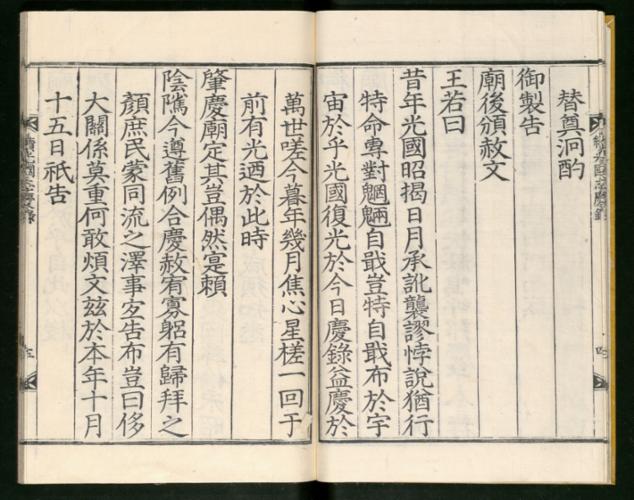 替奠泂酌
御製告
廟後頒赦文
王若曰
昔年光國昭揭日月承訛襲謬悖說猶行
特命專對魍魎自戢豈特自戢布於宇
宙於乎光國復光於今日慶錄益慶於
萬世嗟今暮年幾月焦心星槎一回于
前有光迺於此時
肇慶廟定其豈偶然寔賴
陰隲今遵舊例合慶赦宥寡躳有歸拜之
顏庶民蒙同流之澤事宜告布豈曰侈
大關係莫重何敢煩文玆於本年十月
十五日祇告